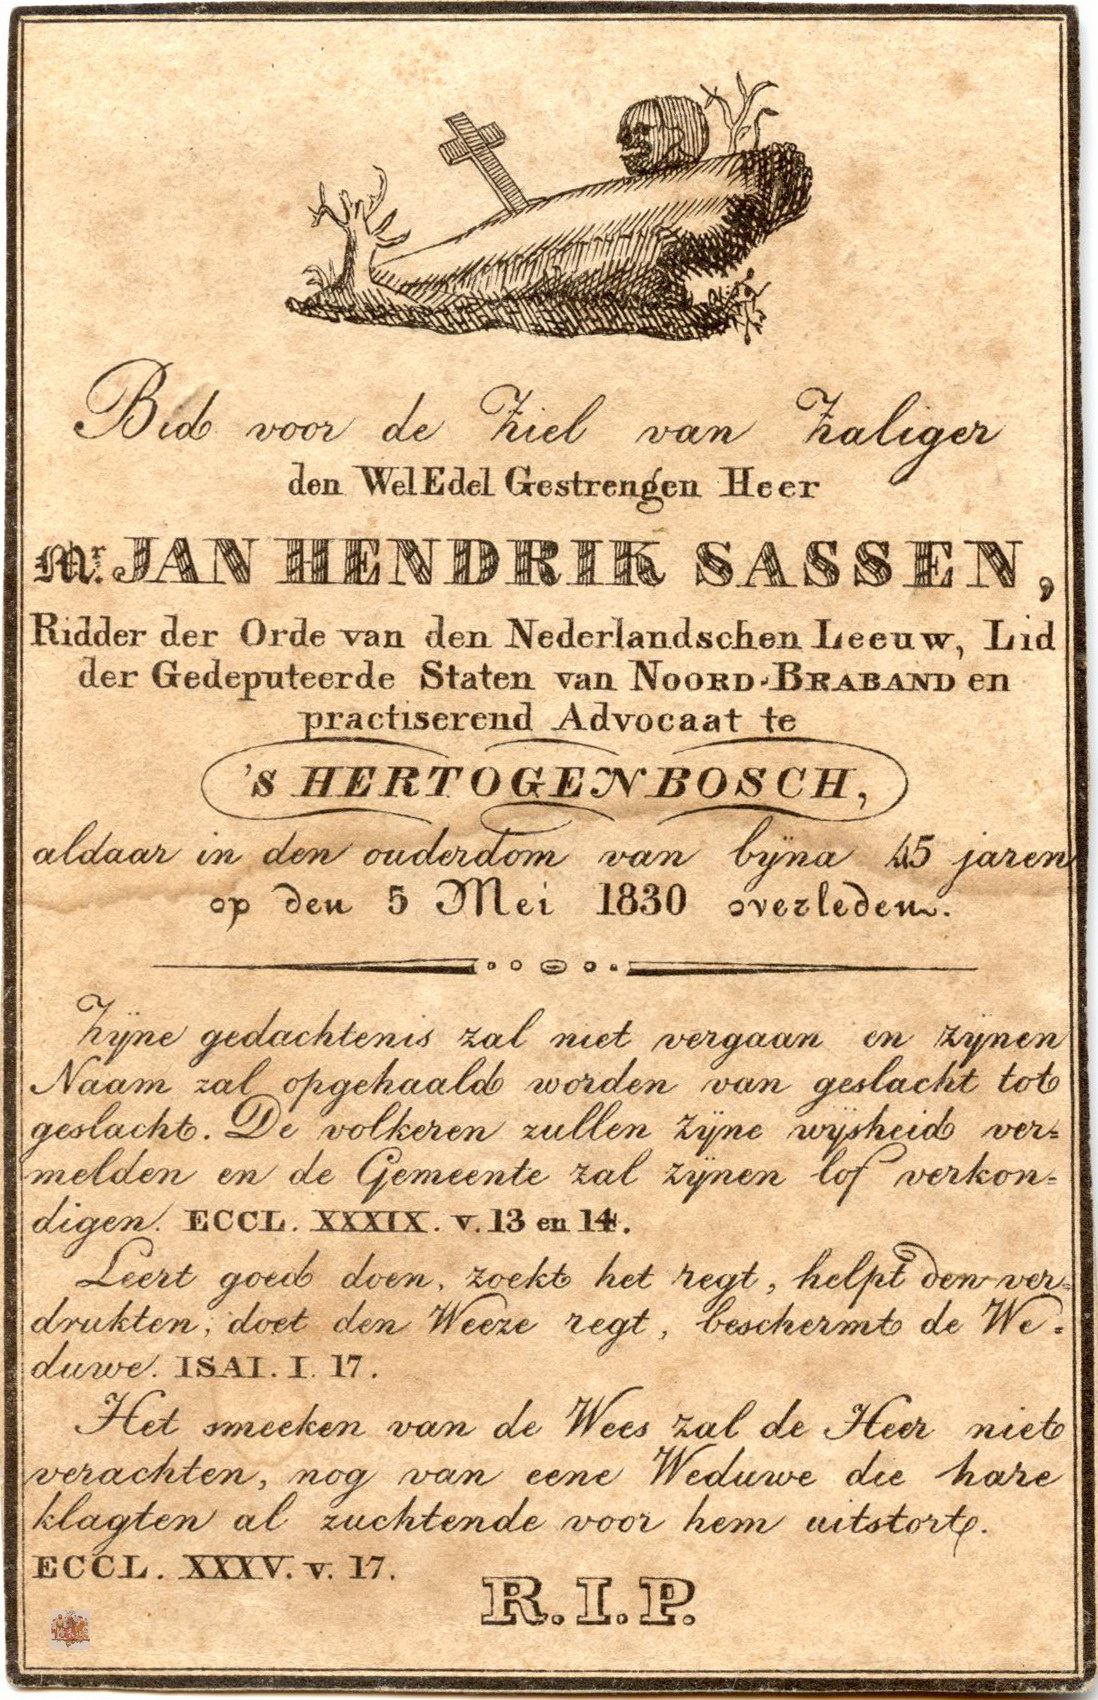 Bid voor de Ziel van Zaliger
den WelEdel Gestrengen Heer
Mr. JAN HENDRIK SASSEN,
Ridder der Orde van den Nederlandschen Leeuw, Lid
der Gedeputeerde Staten van NOORD-BRABAND en
practiserend Advocaat te
's HERTOGENBOSCH,
aldaar in den ouderdom van byna 45 jaren
op den 5 Mei 1830 overleden.
Zyne gedachtenis zal niet vergaan en zynen
Naam zal opgehaald worden van geslacht tot
geslacht. De volkeren zullen Zyne wysheid ver=
melden en de Gemeente zal zynen lof verkon=
digen. ECCL. XXXIX. v. 13 en 14.
Leert goed doen, zoekt het regt, helpt den ver=
drukten, doet den Weeze regt, beschermt de We=
duwe. ISAI. I. 17.
Het smeeken van de Wees zal de Heer niet
verachten, nog van eene Weduwe die hare
klagten al zuchtende voor hem uitstort.
ECCL. XXXV. v. 17.
R.I.P.